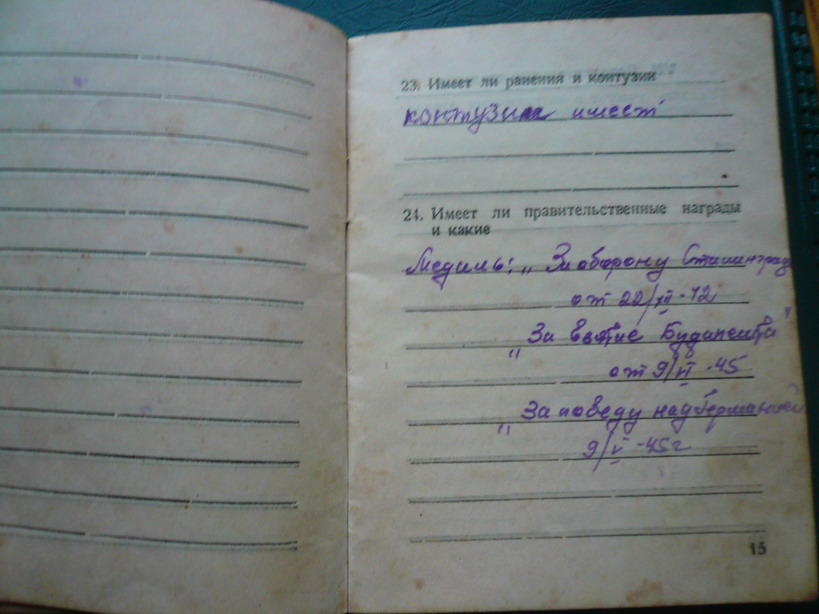 23. Имеет ли ранения и контузии
контузии имеет
24. Имеет ли правительственные награды
и какие
Медиль: „За оборону Сталинград
от 22/XII-42
„За взятие Будапешта"
от 9/VI-45
„За победу над Германией
9/V-45г
15